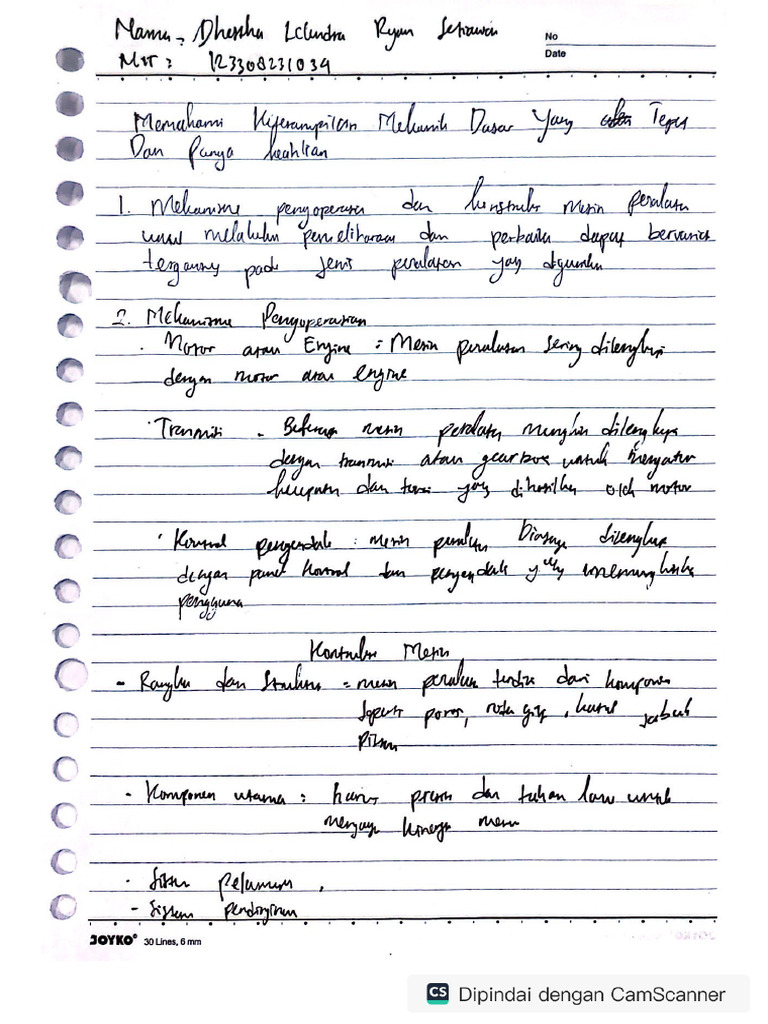 Nama : Dhestha Lclendra Ryan Setiawan
No
Date
NIT : 123308231034
Memahami Keterampilan Mekanik Dasar Yang Tepat
Dan Punya keahlian
1. Mekanisme pengoperasian dan konstruksi mesin peralatan
untuk melakukan pemeliharaan dan perbaikan dapat bervariasi
tergantung pada jenis peralatan yang digunakan
2. Mekanisme Pengoperasian
· Motor atau Engine : Mesin peralatan sering dilengkapi
dengan motor atau engine
· Transmisi - Beberapa mesin peralatan mungkin dilengkapi
dengan transmisi atau gearbox untuk mengatur
kecepatan dan torsi yang dihasilkan oleh motor
· Kontrol pengendali : mesin peralatan biasanya dilengkapi
dengan panel kontrol dan pengendali yang memungkinkan
pengguna
Kontruksi Mesin
- Rangka dan Struktur = mesin peralatan terdiri dari komponen
seperti poros, roda gigi,
piston
- Komponen utama : harus presisi dan tahan lama untuk
menjaga kinerja mesin
· Sistem pelumas
- Sistem pendinginan
JOYKO® 30 Lines, 6 mm
CS Dipindai dengan CamScanner